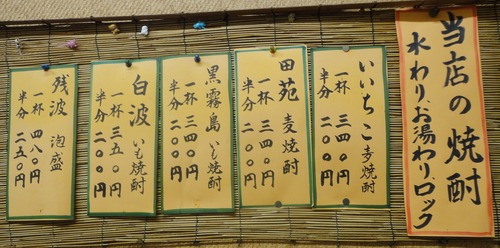 当店の焼酎
水わり、お湯わり、ロック
いいちこ 麦焼酎
一杯 三四〇円
半分 二〇〇円
田苑 麦焼酎
一杯 三四〇円
半分 二〇〇円
黒霧島 いも焼酎
一杯 三四〇円
半分 二〇〇円
白波 いも焼酎
一杯 三五〇円
半分 二〇〇円
残波 泡盛
一杯 四八〇円
半分 二五〇円